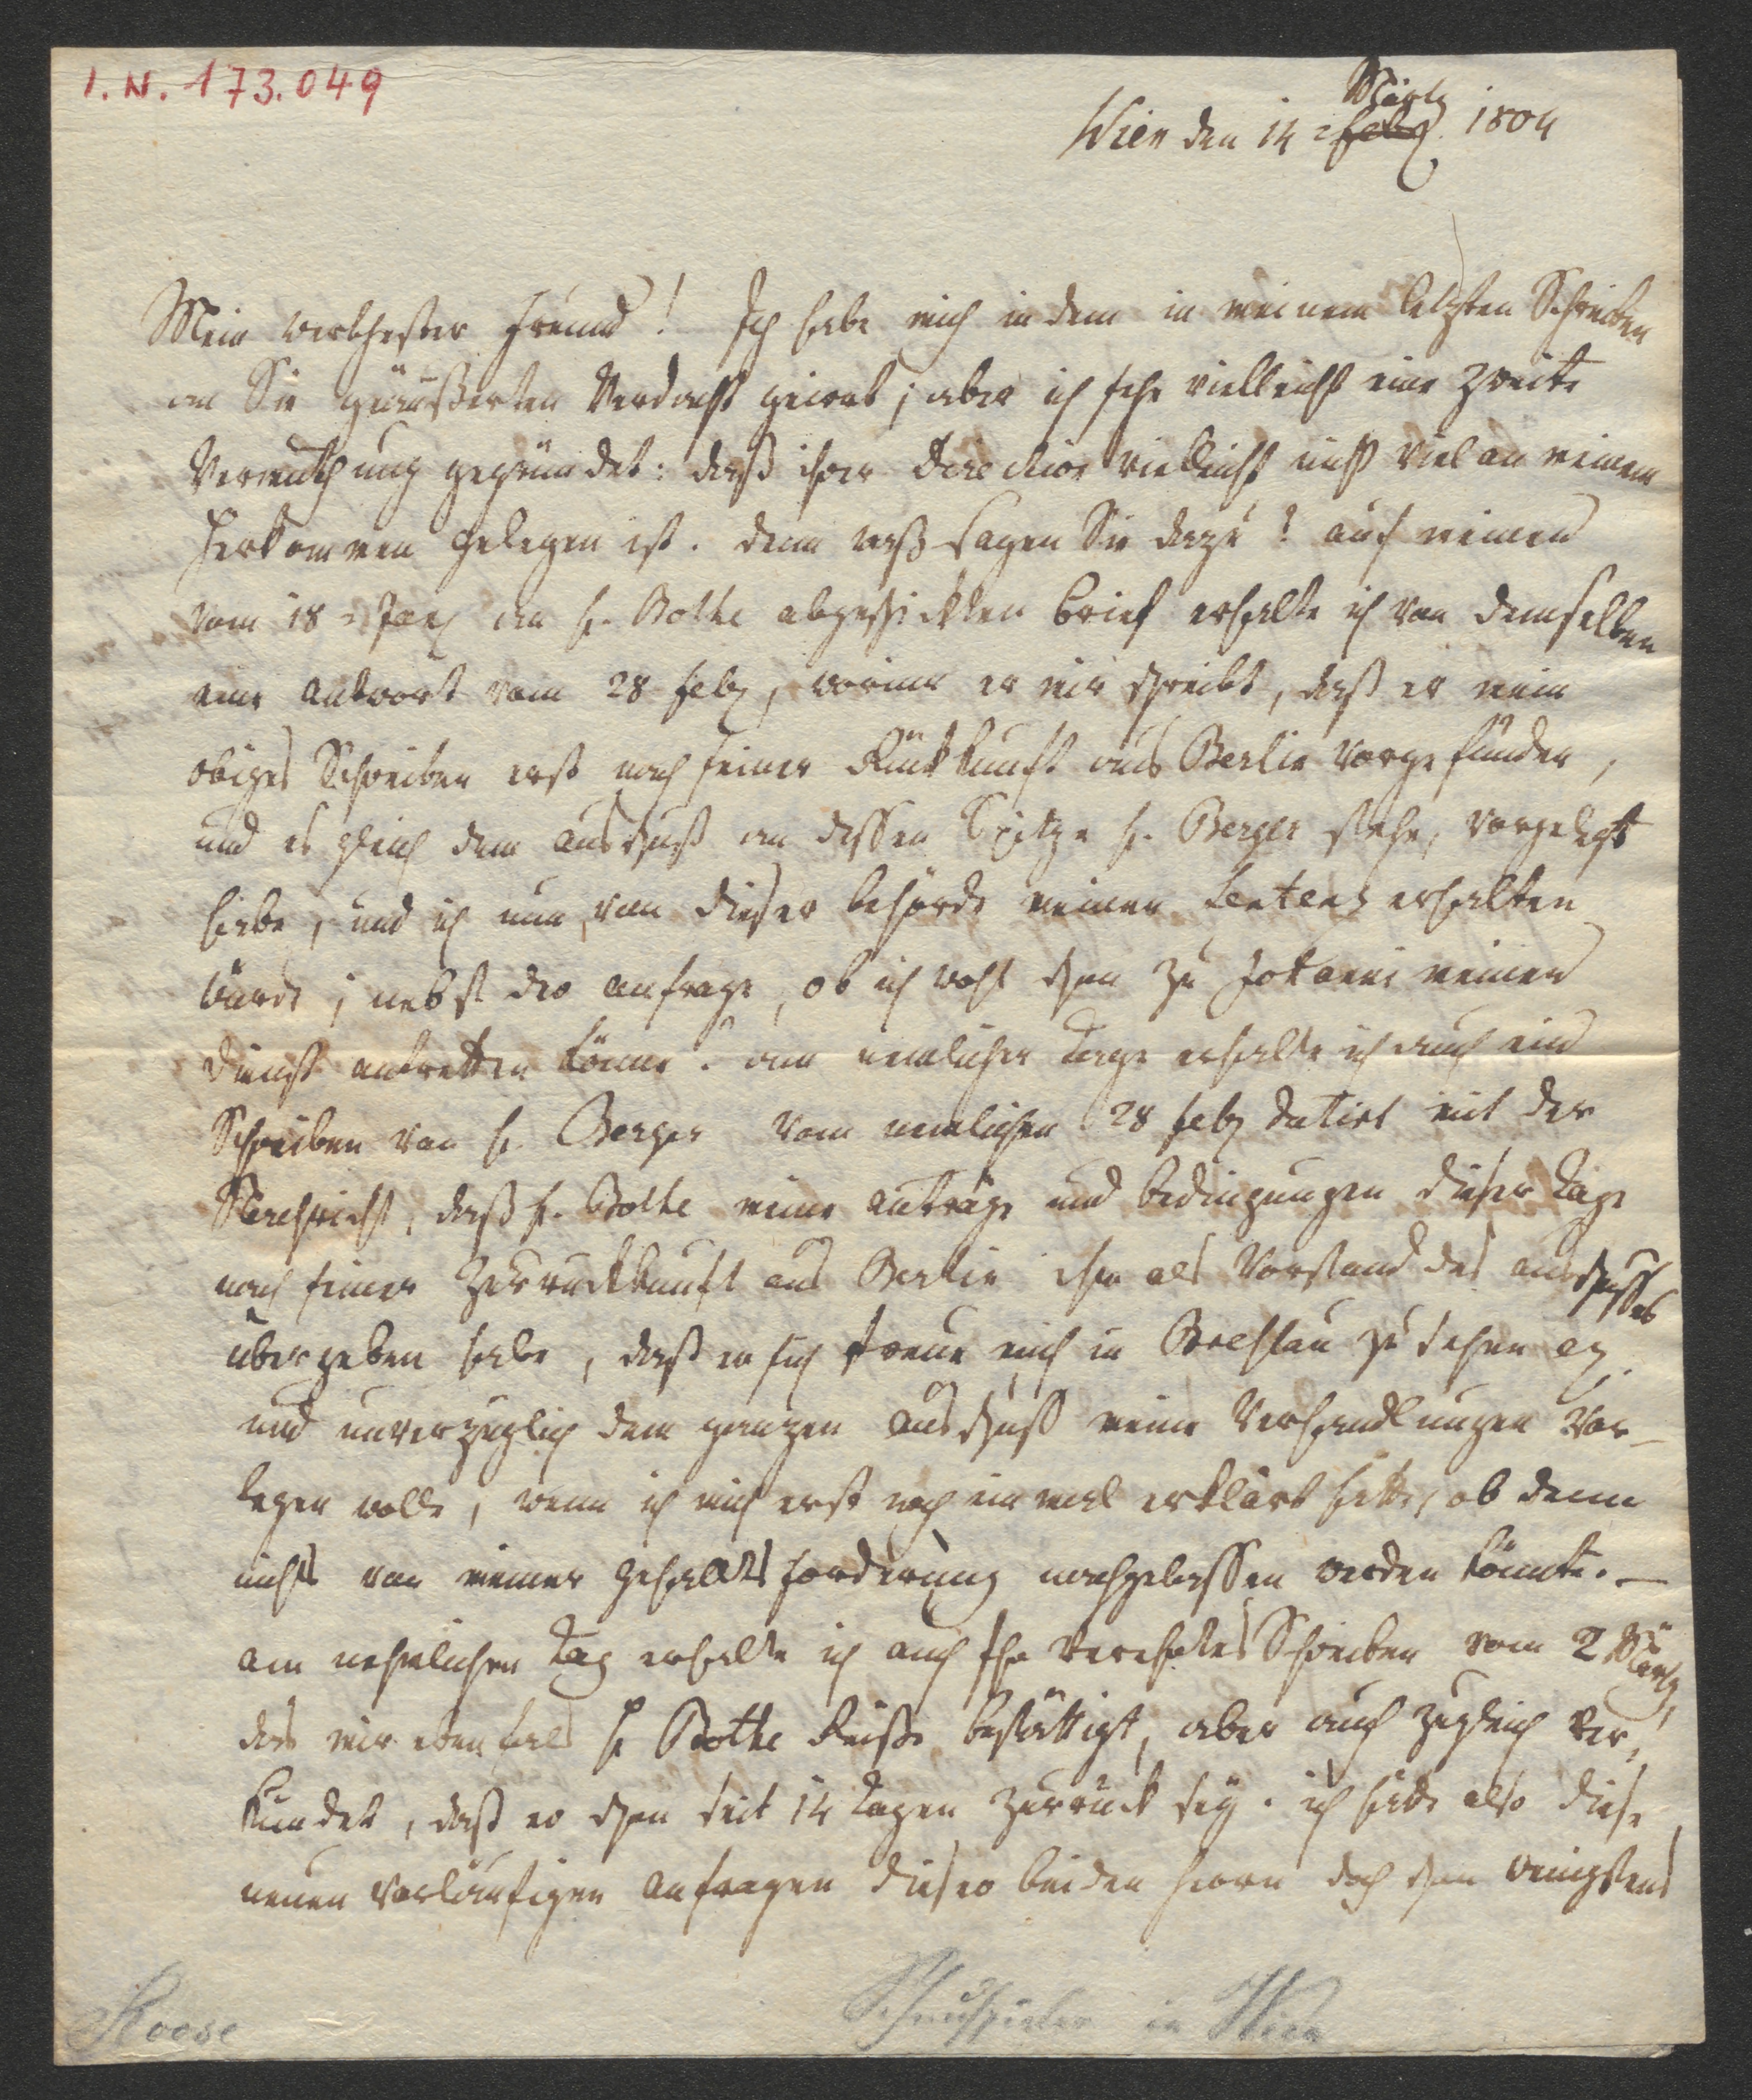 I.N. 173.049
Wien den 14 2 feb März 1804
Mein werthester Freund! Ich habe mich in dem in meinem letzten Schreiben
an Sie geäußerten Verdacht geirrt; aber ich sehe vielleicht eine zweite
Vermuthung gegründet: daß ihrer Direction vielleicht nicht viel an meinem
Herkommen gelegen ist. denn waß sagen Sie dazu? auf meinen
vom 18 Jan an H. Bothe abgeschickten Brief erhalte ich von demselben
eine Antwort vom 28 feb, worinn er mir schreibt, daß er mein
obiges Schreiben erst nach seiner Rückkunft aus Berlin vorgefunden,
und es gleich dem Ausschuß an dessen Spitze H. Berger stehe, vorgelegt
habe, und ich nun von dieser behörde meinen Sentenz erhalten
würde; nebst der anfrage, ob ich wohl schon zu Johanni meinen
dienst antretten könne. am nemlichen Tage erhalte ich auch ein
Schreiben von H. Berger vom nemlichen 28 feb datirt mit der
Nachricht, daß H. Bothe meine anträge und bedingungen dieser Tage
nach seiner Zurruckkunft aus Berlin ihm als Vorstand des ausschusses
übergeben habe, daß er sich freue mich in Breslau zu sehen
und unverzüglich dem ganzen ausschuß meine Verhandlungen vor-
legen wolle, wenn ich mich erst noch einmal erklärt hätte, ob denn
nichts von meiner gehaltsforderung nachgelassen werden könnte. —
am nehmlichen Tag erhalte ich auch Ihr verehrtes Schreiben vom 2 März,
das mir ebenfals H Bothe Reise bestättigt, aber auch zugleich ver-
kündet, daß er schon seit 14 Tagen zurrück sey. ich hätte also diese
neuen vorläufigen anfragen dieser beiden Herrn doch schon wenigstens
Roose
Schauspieler in Wien